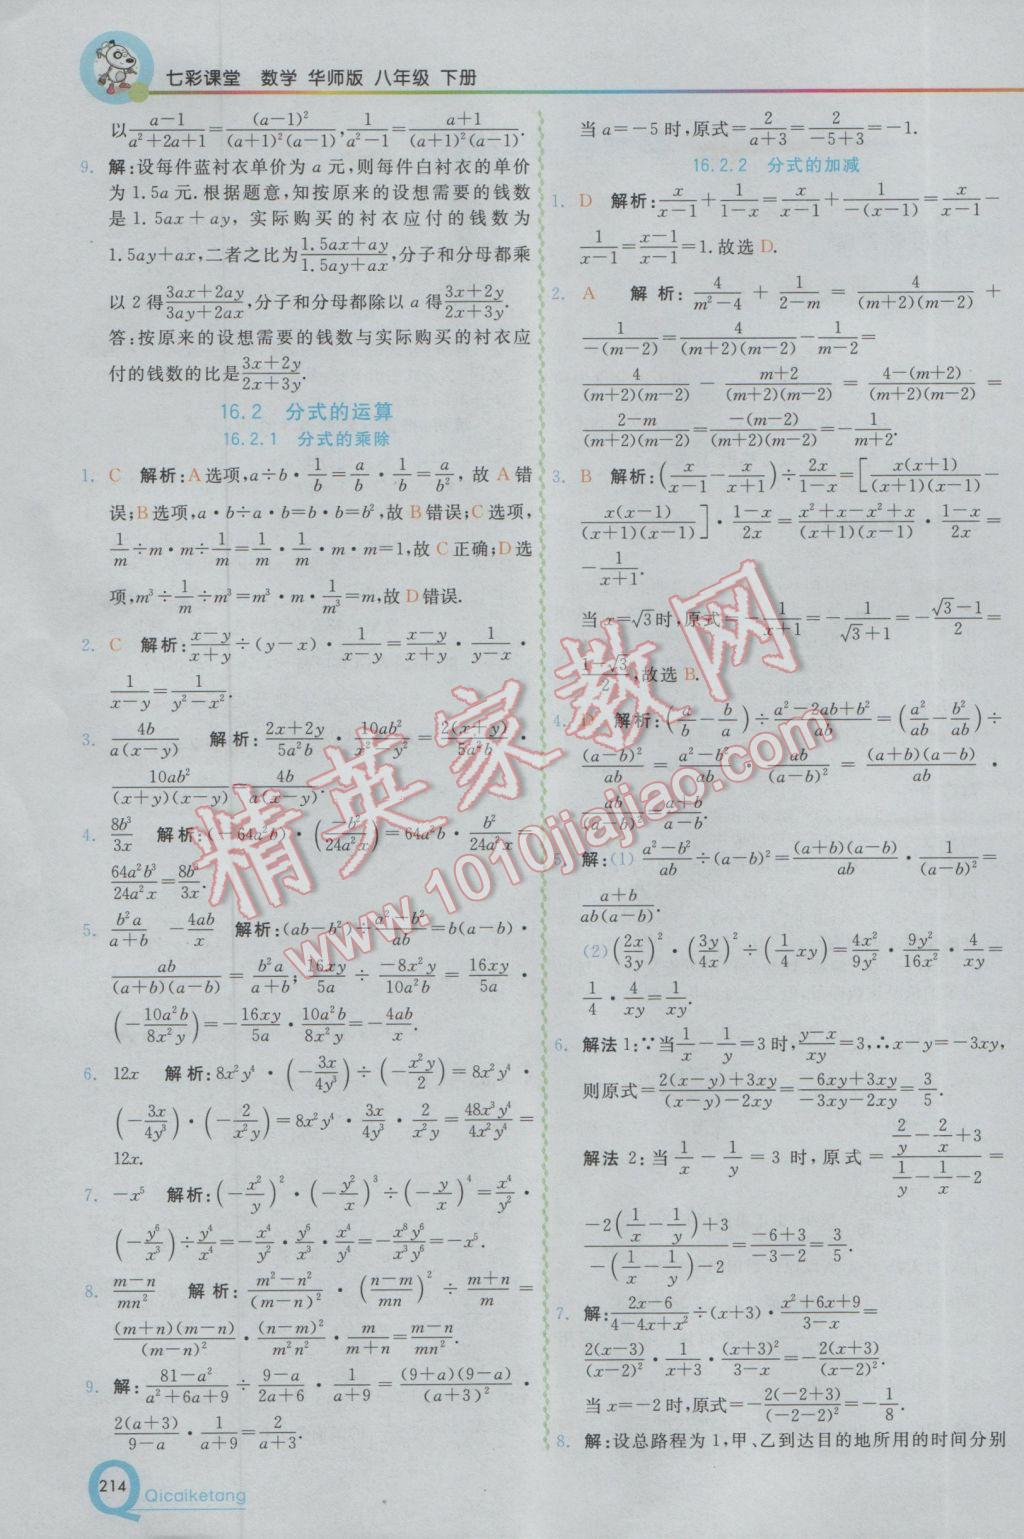 七彩课堂 数学 华师版 八年级 下册
以(a-1)/(a²+2a+1)=(a-1)²/((a+1)²(a-1)),1/(a²-1)=(a+1)/((a+1)²(a-1)).
9. 解:设每件蓝衬衣单价为 a 元,则每件白衬衣的单价
为 1.5a 元.根据题意,知按原来的设想需要的钱数
是 1.5ax+ay, 实际购买的衬衣应付的钱数为
1.5ay+ax,二者之比为(1.5ax+ay)/(1.5ay+ax),分子和分母都乘
以 2 得(3ax+2ay)/(3ay+2ax),分子和分母都除以 a 得(3x+2y)/(2x+3y).
答:按原来的设想需要的钱数与实际购买的衬衣应
付的钱数的比是(3x+2y)/(2x+3y).
16.2 分式的运算
16.2.1 分式的乘除
1. C 解析:A选项,a÷b·1/b=a/b·1/b=a/b²,故 A 错
误;B选项,a·b÷a·b=b·b=b²,故 B错误;C选项,
1/m÷m·m÷1/m=1/m·1/m·m·m=1,故 C 正确;D选
项,m³÷1/m÷m³=m³·m·1/m³=m,故 D 错误.
2. C 解析:(x-y)/(x+y)÷(y-x)·1/(x-y)=(x-y)/(x+y)·1/(y-x)·
1/(x-y)=1/(y²-x²).
3. 4b/(a(x-y)) 解析:(2x+2y)/(5a²b)·10ab²/(x²-y²)=2(x+y)/(5a²b)·
10ab²/((x+y)(x-y))=4b/(a(x-y)).
4. 8b³/3x 解析:(-64a²b)·(-b²/(24a²x))=64a²b·b²/(24a²x)=
64a²b³/(24a²x)=8b³/3x.
5. b²a/(a+b) -4ab/x 解析:(ab-b²)÷(a²-b²)/ab=b(a-b)·
ab/((a+b)(a-b))=b²a/(a+b);16xy/5a÷(-8x²y)/(10a²b)=16xy/5a·
(-10a²b/(8x²y))=-16xy/5a·10a²b/(8x²y)=-4ab/x.
6. 12x 解析:8x²y⁴·(-3x/4y³)÷(-x²y/2)=8x²y⁴
·(-3x/4y³)·(-2/(x²y))=8x²y⁴·3x/4y³·2/(x²y)=48x³y⁴/(4x²y⁴)=
12x.
7. -x⁵ 解析:(-x²/y)²·(-y²/x)³÷(-y/x)⁴=x⁴/y²·
(-y⁶/x³)÷y⁴/x⁴=-x⁴/y²·y⁶/x³·x⁴/y⁴=-x⁸y⁶/(x³y⁶)=-x⁵.
8. (m-n)/(mn²) 解析:(m²-n²)/(m-n)²·((n-m)/mn)²÷(m+n)/m=
(m+n)(m-n)/(m-n)²·(n-m)²/(m²n²)·m/(m+n)=(m-n)/(mn²).
9. 解:(81-a²)/(a²+6a+9)÷(9-a)/(2a+6)·1/(a+9)=(9+a)(9-a)/(a+3)²·
2(a+3)/(9-a)·1/(a+9)=2/(a+3).
当 a=-5 时,原式=2/(a+3)=2/(-5+3)=-1.
16.2.2 分式的加减
1. D 解析:x/(x-1)+1/(1-x)=x/(x-1)+1/(-(x-1))=x/(x-1)-
1/(x-1)=(x-1)/(x-1)=1.故选 D.
2. A 解析:4/(m²-4)+1/(2-m)=4/((m+2)(m-2))+
1/(-(m-2))=4/((m+2)(m-2))-1/(m-2)=
4/((m+2)(m-2))-(m+2)/((m+2)(m-2))=(4-(m+2))/((m+2)(m-2))=
(2-m)/((m+2)(m-2))=-(m-2)/((m+2)(m-2))=-1/(m+2).
3. B 解析:(x/(x-1)-x/(x+1))÷2x/(1-x)=[x(x+1)/((x+1)(x-1))-
x(x-1)/((x+1)(x-1))]·(1-x)/2x=(x²+x-x²+x)/((x+1)(x-1))·(1-x)/2x=
-1/(x+1).
当 x=√3时,原式=-1/(x+1)=-1/(√3+1)=-(√3-1)/2=
(1-√3)/2,故选 B.
4. D 解析:(a/b-b/a)÷(a²-2ab+b²)/ab=(a²/ab-b²/ab)÷
(a-b)²/ab=(a²-b²)/ab·ab/(a-b)²=(a+b)(a-b)/ab·
ab/(a-b)²=(a+b)/(a-b).
5. 解:(1) (a²-b²)/ab÷(a-b)²=(a+b)(a-b)/ab·1/(a-b)²=
(a+b)/(ab(a-b)).
(2)(2x/3y)²·(3y/4x)²÷(1/4 xy)=4x²/9y²·9y²/16x²·4/xy=
1/4·4/xy=1/xy.
6. 解法 1:∵当1/x-1/y=3 时,(y-x)/xy=3,∴x-y=-3xy,
则原式=(2(x-y)+3xy)/((x-y)-2xy)=(-6xy+3xy)/(-3xy-2xy)=3/5.
解法 2:当1/x-1/y=3 时,原式=(2/y-2/x+3)/(1/y-1/x-2)=
(-2(1/x-1/y)+3)/(-(1/x-1/y)-2)=(-6+3)/(-3-2)=3/5.
7. 解:(2x-6)/(4-4x+x²)÷(x+3)·(x²+6x+9)/(3-x)=
2(x-3)/(x-2)²·1/(x+3)·(x+3)²/(3-x)=-2(x+3)/(x-2)².
当 x=-2 时,原式=-2(-2+3)/(-2-2)²=-1/8.
8. 解:设总路程为 1,甲、乙到达目的地所用的时间分别
214
Qicaiketang
精英家教网
www.1010jiajiao.com